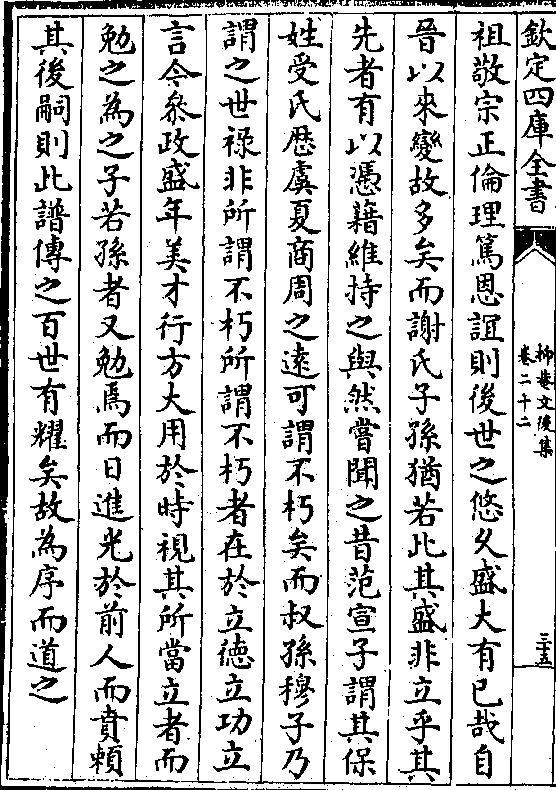 欽定四庫全書
抑菴文後集
卷二十二
三十五
祖敬宗正倫理篤恩誼則後世之悠久盛大有已哉自
晉以來變故多矣而謝氏子孫猶若此其盛非立乎其
先者有以憑藉維持之與然嘗聞之昔范宣子謂其保
姓受氏歷虞夏商周之遠可謂不朽矣而叔孫穆子乃
謂之世祿非所謂不朽所謂不朽者在於立德立功立
言今參政盛年美才行方大用於時視其所當立者而
勉之為之子若孫者又勉焉而日進光於前人而賁賴
其後嗣則此譜傳之百世有耀矣故為序而道之